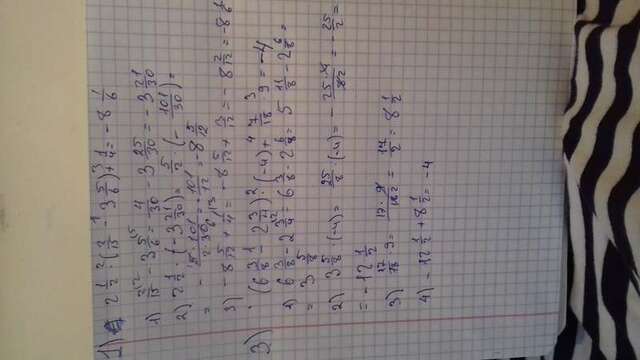 1) 2 1/2 · (2/15 - 3 5/6) + 1/4 = -8 1/6
1) 2/15 - 3 5/6 = 4/30 - 3 25/30 = -3 21/30
2) 2 1/2 · (-3 21/30) = 5/2 · (- 101/30) =
= - 5·101/2·30 = - 101/12 = -8 5/12
3) -8 5/12 + 1/4 = -8 5/12 + 3/12 = -8 2/12 = -8 1/6
3) (6 3/8 - 2 3/4) · (-4) + 7/18 · 9 = -4
1) 6 3/8 - 2 3/4 = 6 3/8 - 2 6/8 = 5 11/8 - 2 6/8 =
= 3 5/8
2) 3 5/8 · (-4) = 25/8 · (-4) = - 25·4/82 = - 25/2 =
= -12 1/2
3) 17/18 · 9 = 17·9/182 = 17/2 = 8 1/2
4) -12 1/2 + 8 1/2 = -4